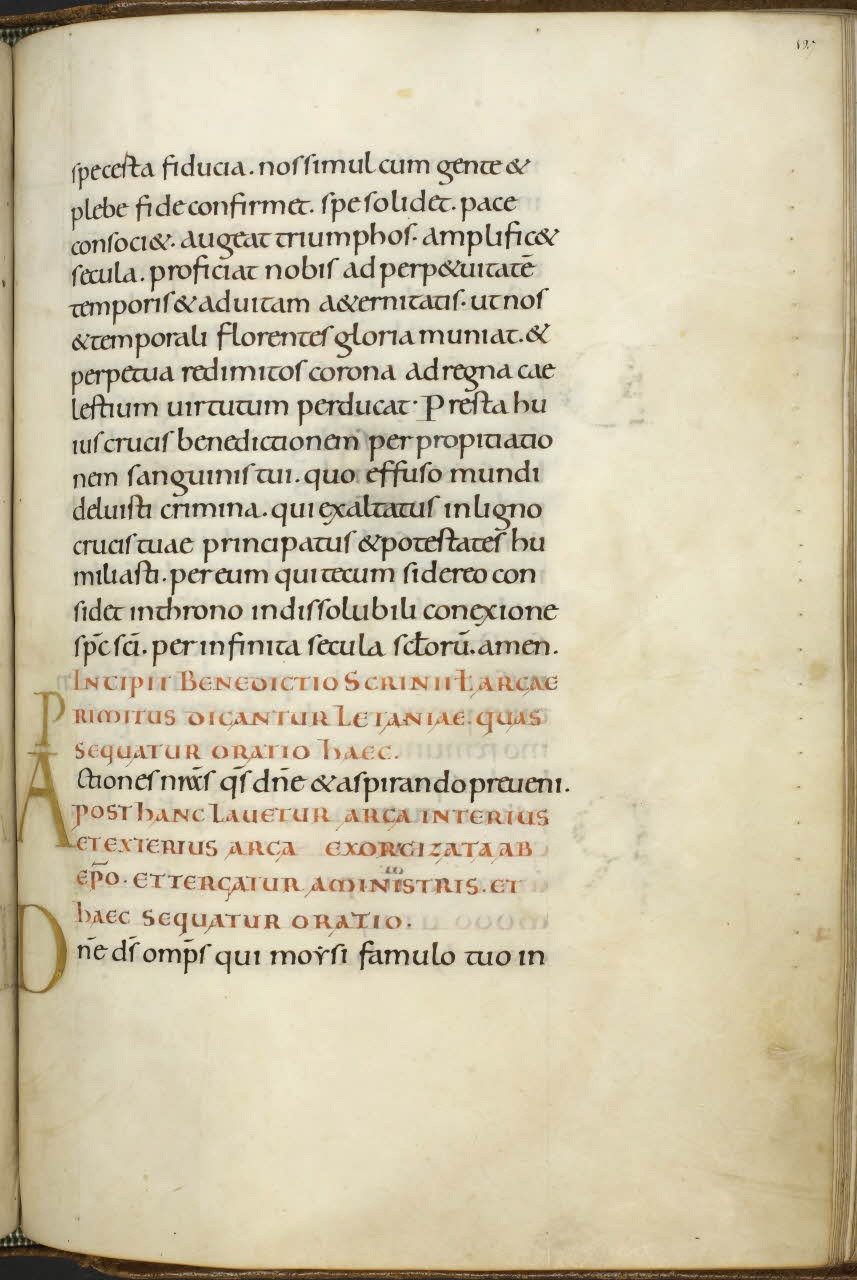 127
spe certa fiducia. nos simul cum gente &
plebe fide confirmet. spe solidet. pace
consoci&. augeat triumphos. amplific&
secula. proficiat nobis ad perp&uitatē
temporis & ad uitam a&ernitatis. ut nos
& temporali florentes gloria muniat. &
perpetua redimitos corona ad regna cae
lestium uirtutum perducat. Presta hu
ius crucis benedictionem per propitiatio
nem sanguinis tui. quo effuso mundi
deluisti crimina. qui exaltatus in ligno
crucis tuae principatus & potestates hu
miliasti. per eum qui tecum sidereo con
sidet in throno indissolubili conexione
sp̄c sc̄i. per infinita secula sc̄torū. amen.
INCIPIT BENEDICTIO SCRINII Ł ARCAE
PRIMITUS DICANTUR LETANIAE. QUAS
SEQUATUR ORATIO HAEC.
Actiones nr̄as q̄s dn̄e & aspirando preueni.
POST HANC LAUETUR ARCA INTERIUS
ET EXTERIUS ARCA EXORCIZATA AB
EP̄O. ET TERGATUR A MINISTRIS. ET
HAEC SEQUATUR ORATIO.
Dn̄e ds̄ omp̄s qui moẏsi famulo tuo in